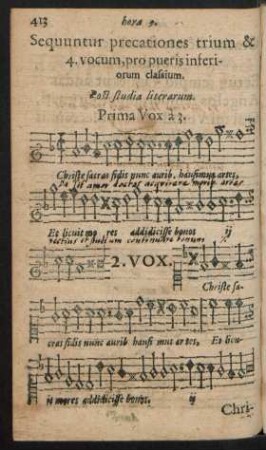 413 hora 9.
Sequuntur precationes trium &
4. vocum, pro pueris inferi-
orum classium.
Post studia literarum.
Prima Vox à 3.
Christe sacras fidis nunc aurib. hausimus artes,
Da sit amor doctas acquirere
Et licuit mo res addidicisse bonos ij
rectius et studium continuare bonum
2. VOX.
Christe sa-
cras fidis nunc aurib hausi mus artes, Et licu-
it mores addidicisse bonos, ij
Chri-